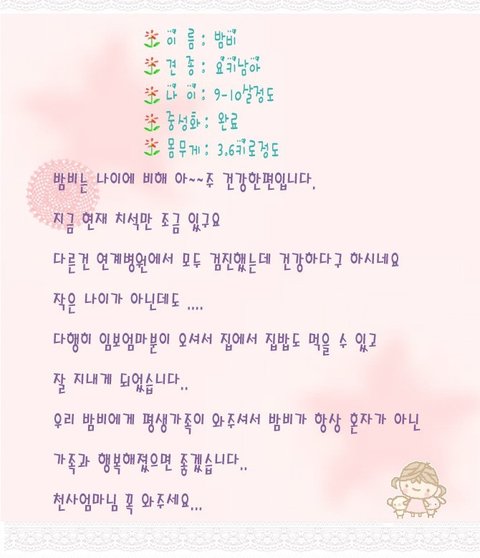 이 름 : 밤비
견 종 : 요키남아
나 이 : 9-10살정도
중성화 : 완료
몸무게 : 3.6키로정도
밤비는 나이에 비해 아~~주 건강한편입니다.
지금 현재 치석만 조금 있구요
다른건 연계병원에서 모두 검진했는데 건강하다구 하시네요
작은 나이가 아닌데도 ....
다행히 임보엄마분이 오셔서 집에서 집밥도 먹을 수 있고
잘 지내게 되었습니다..
우리 밤비에게 평생가족이 와주셔서 밤비가 항상 혼자가 아닌
가족과 행복해졌으면 좋겠습니다..
천사엄마님 꼭 와주세요...